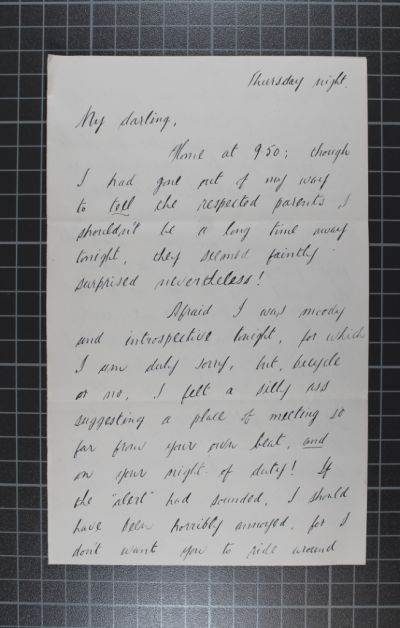 Thursday night.
My darling,
Home at 9.50; though
I had gone out of my way
to tell the respected parents I
shouldn't be a long time away
tonight, they seemed faintly
surprised nevertheless!
Afraid I was moody
and introspective tonight, for which
I am duly sorry; but, bicycle
or no, I felt a silly ass
suggesting a place of meeting so
far from your own beat, and
on your night of duty! If
the "alert" had sounded, I should
have been horribly annoyed, for I
don't want you to ride around